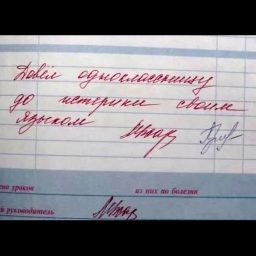 Довёл одноклассницу
до истерики своим
языком
ена уроков из них по болезни
й руководитель